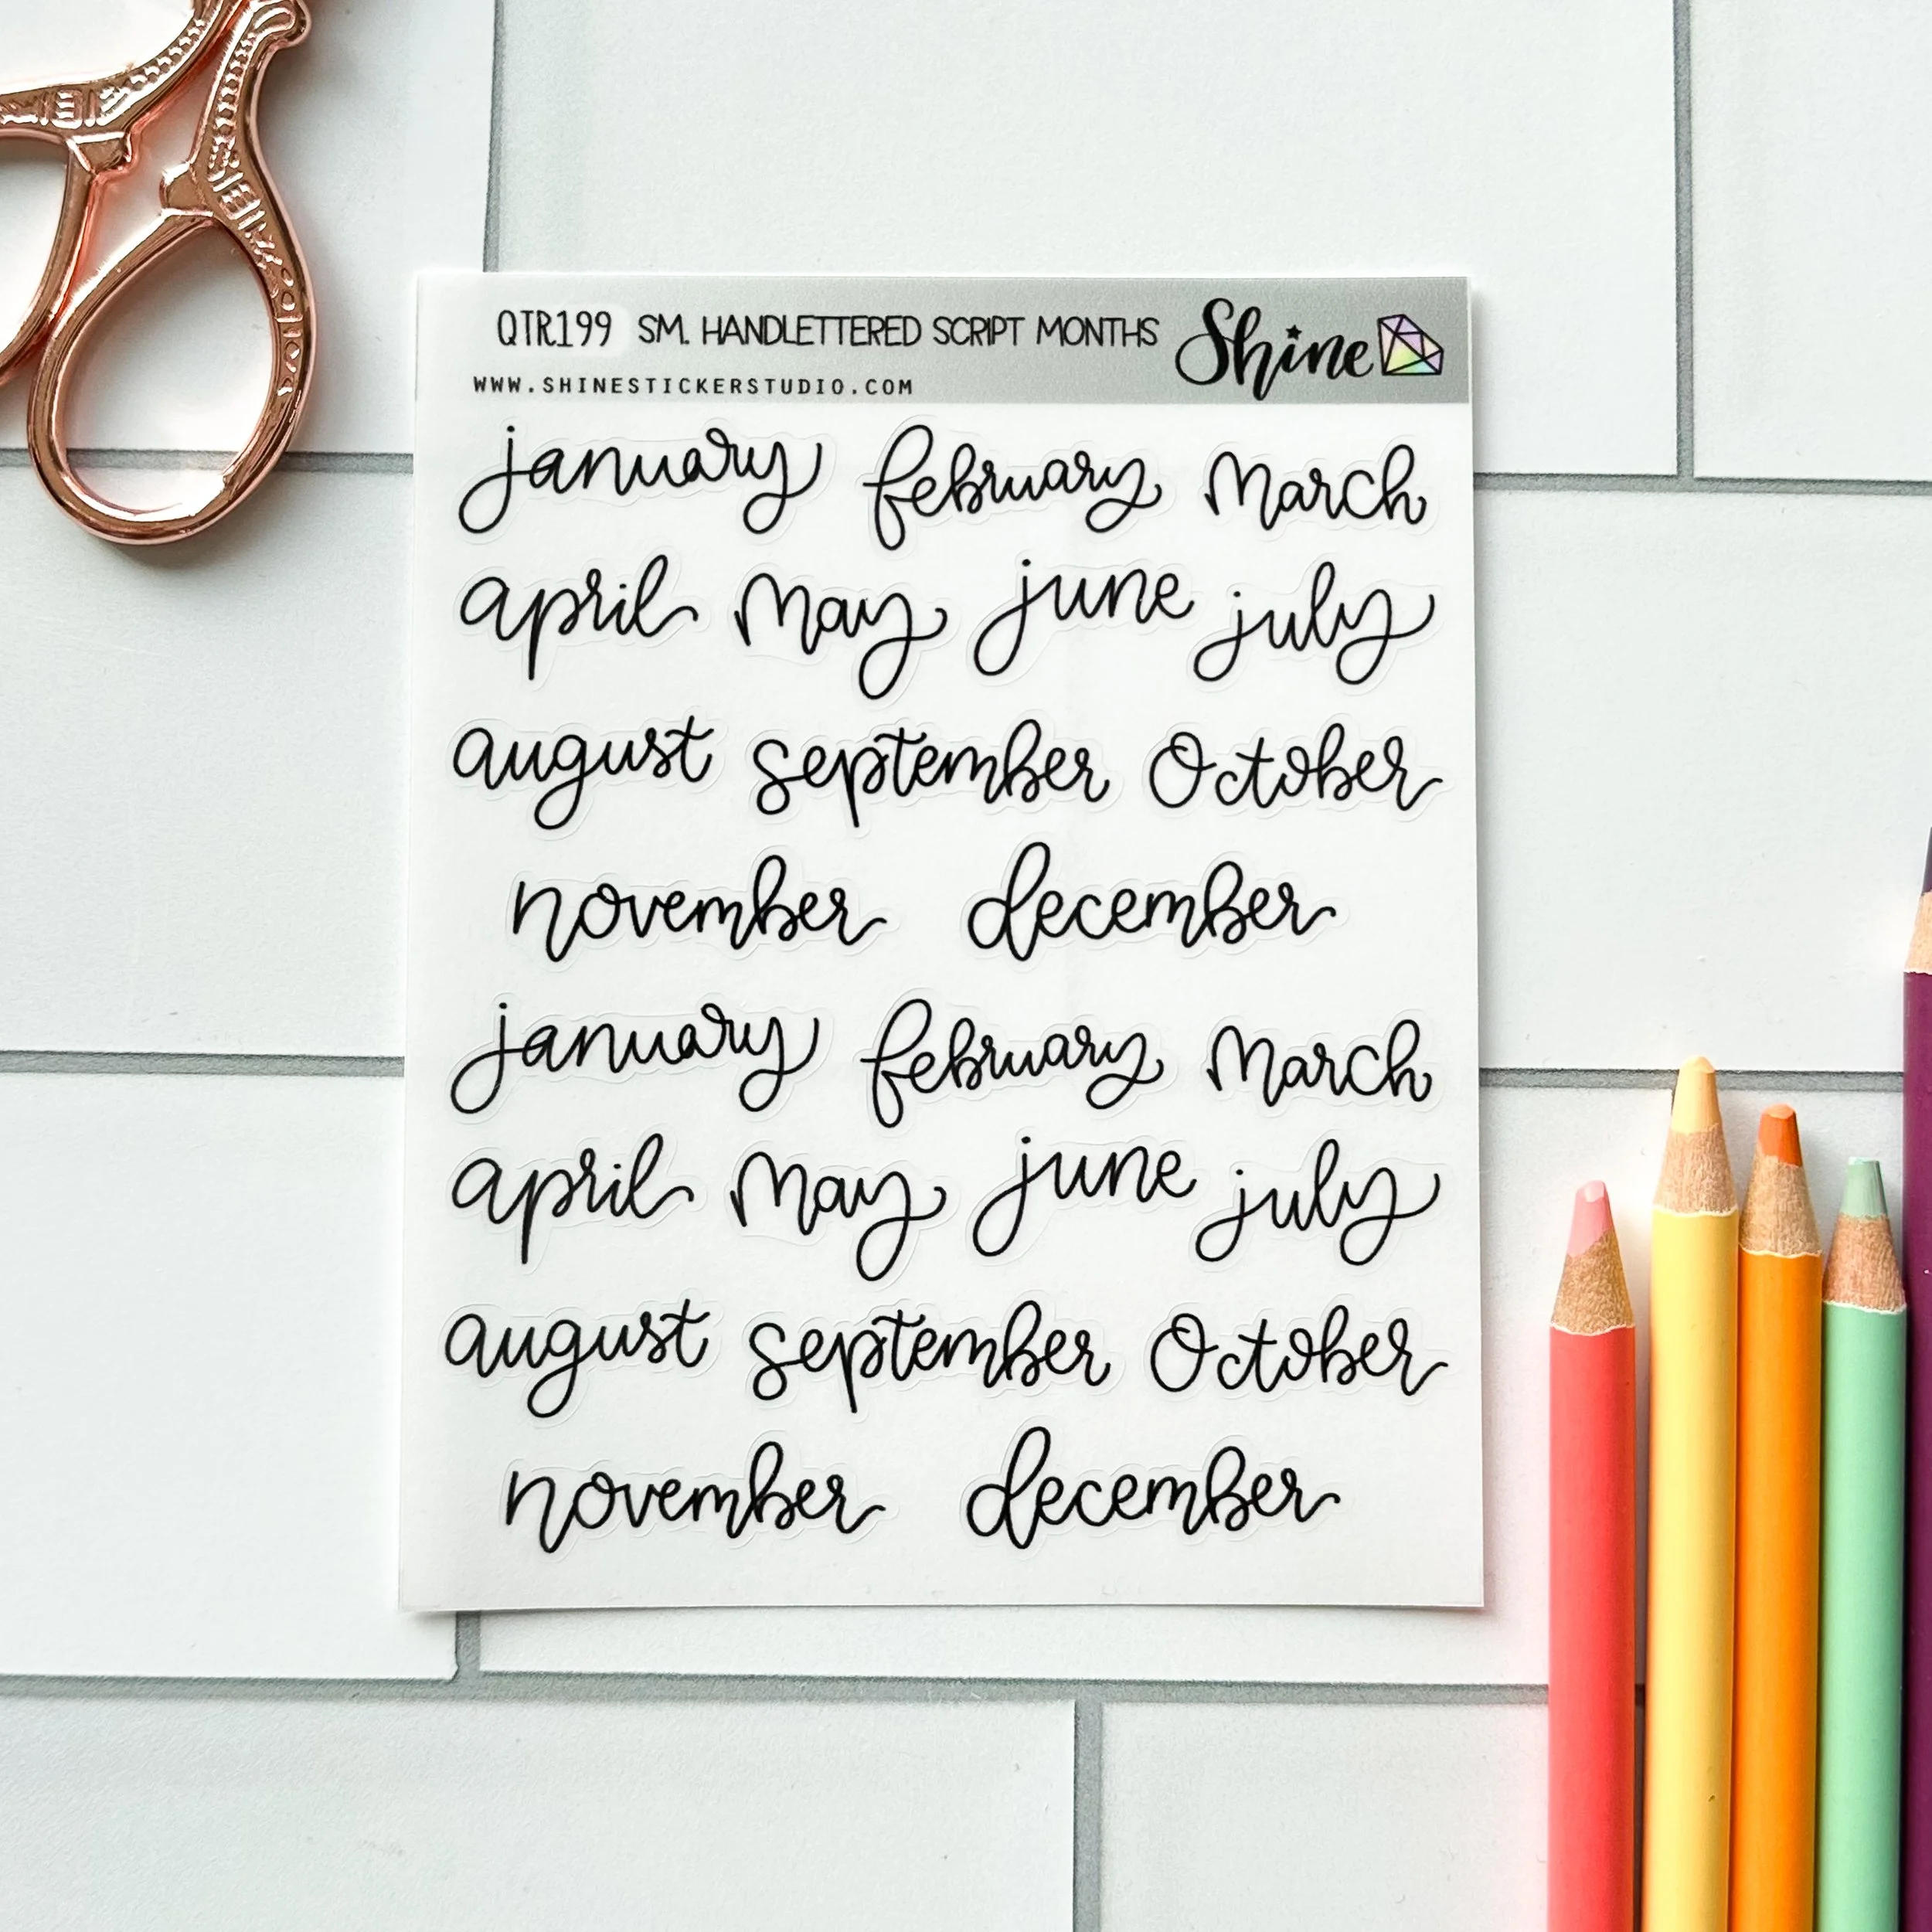 QTR199 SM. HANDLETTERED SCRIPT MONTHS Shine
WWW.SHINESTICKERSTUDIO.COM
january february march
april may june july
august september October
november december
january february march
april may june july
august september October
november december